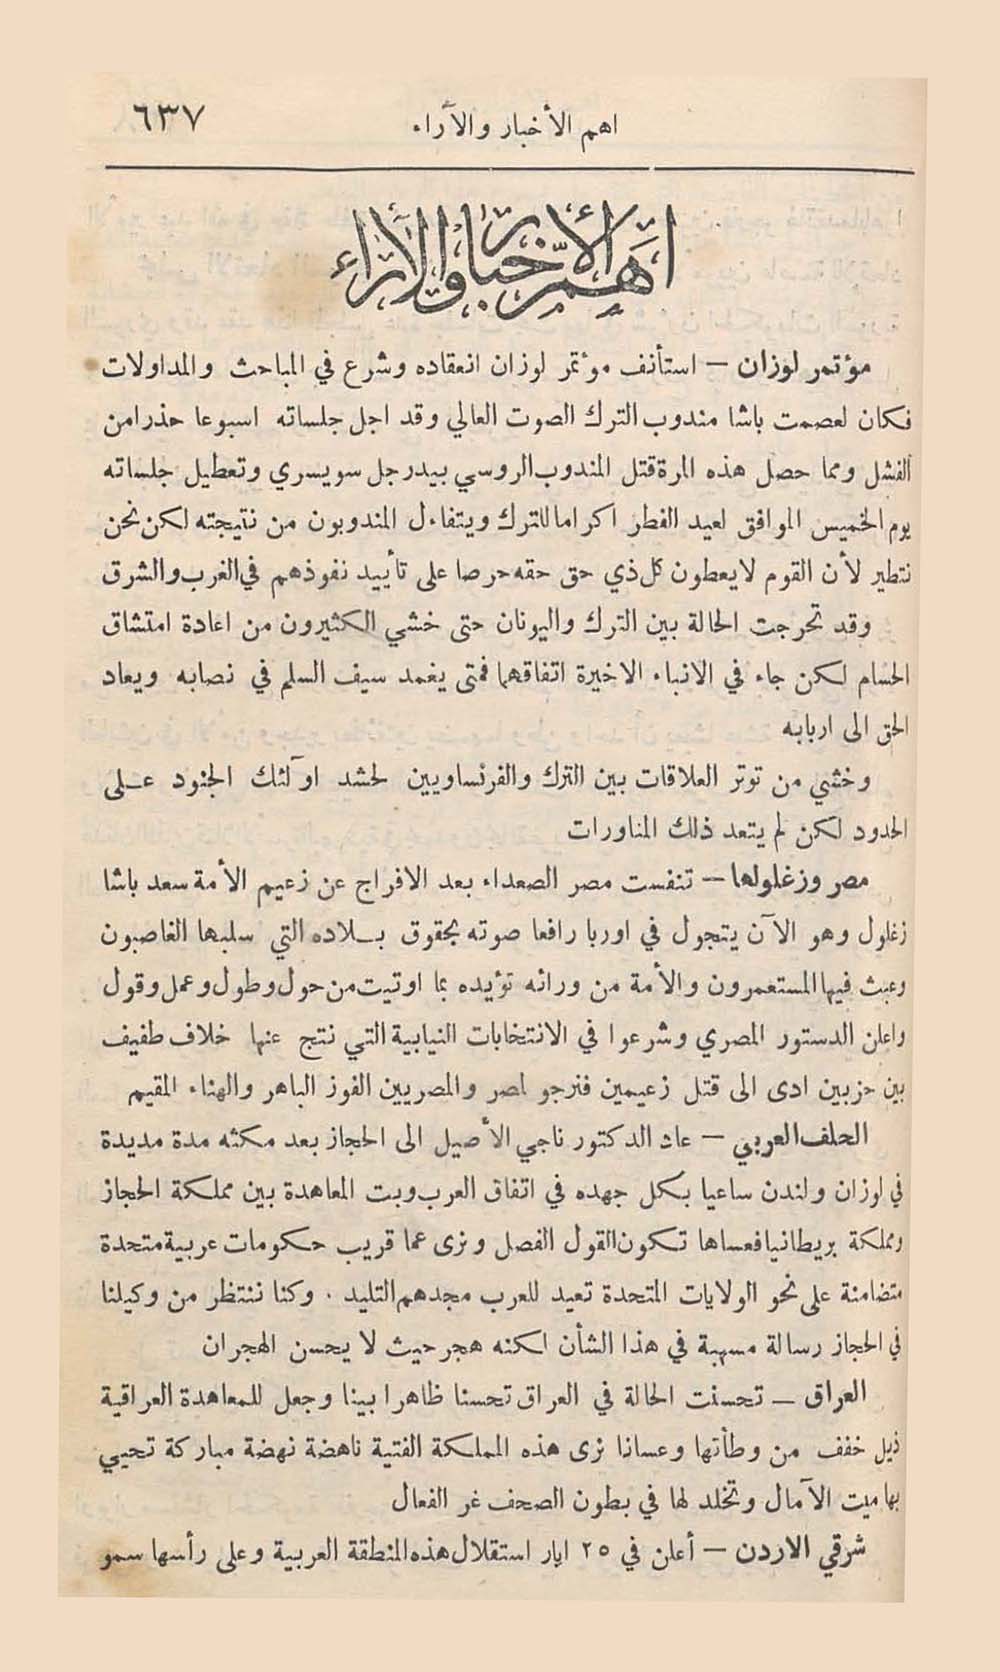 اهم الأخبار والآراء ٦٣٧
اهم الأخبار والآراء
مؤتمر لوزان — استأنف مؤتمر لوزان انعقاده وشرع في المباحث والمداولات
فكان لعصمت باشا مندوب الترك الصوت العالي وقد اجل جلساته اسبوعا حذرا من
الفشل ومما حصل هذه المرة قتل المندوب الروسي بيد رجل سويسري وتعطيل جلساته
يوم الخميس الموافق لعيد الفطر اكراما للترك ويتفاءل المندوبون من نتيجته لكن نحن
نتطير لأن القوم لا يعطون كل ذي حق حقه حرصا على تأييد نفوذهم في الغرب والشرق
وقد تحرجت الحالة بين الترك واليونان حتى خشي الكثيرون من اعادة امتشاق
الحسام لكن جاء في الانباء الاخيرة اتفاقهما فمتى يغمد سيف السلم في نصابه ويعاد
الحق الى اربابه
وخشي من توتر العلاقات بين الترك والفرنساويين لحشد اولئك الجنود على
الحدود لكن لم يتعد ذلك المناورات
مصر وزغلولها — تنفست مصر الصعداء بعد الافراج عن زعيم الأمة سعد باشا
زغلول وهو الآن يتجول في اوربا رافعا صوته بحقوق بلاده التي سلبها الغاصبون
وعبث فيها المستعمرون والأمة من ورائه تؤيده بما اوتيت من حول وطول وعمل وقول
واعلن الدستور المصري وشرعوا في الانتخابات النيابية التي نتج عنها خلاف طفيف
بين حزبين ادى الى قتل زعيمين فنرجو لمصر والمصريين الفوز الباهر والهناء المقيم
الحلف العربي — عاد الدكتور ناجي الأصيل الى الحجاز بعد مكثه مدة مديدة
في لوزان ولندن ساعيا بكل جهده في اتفاق العرب وبت المعاهدة بين مملكة الحجاز
ومملكة بريطانيا فعساها تكون القول الفصل ونرى عما قريب حكومات عربية متحدة
متضامنة على نحو الولايات المتحدة تعيد للعرب مجدهم التليد . وكنا ننتظر من وكيلنا
في الحجاز رسالة مسهبة في هذا الشأن لكنه هجر حيث لا يحسن الهجران
العراق — تحسنت الحالة في العراق تحسنا ظاهرا بينا وجعل للمعاهدة العراقية
ذيل خفف من وطأتها وعسانا نرى هذه المملكة الفتية ناهضة نهضة مباركة تحيي
بها ميت الآمال وتخلد لها في بطون الصحف غر الفعال
شرقي الاردن — أعلن في ٢٥ ايار استقلال هذه المنطقة العربية وعلى رأسها سمو